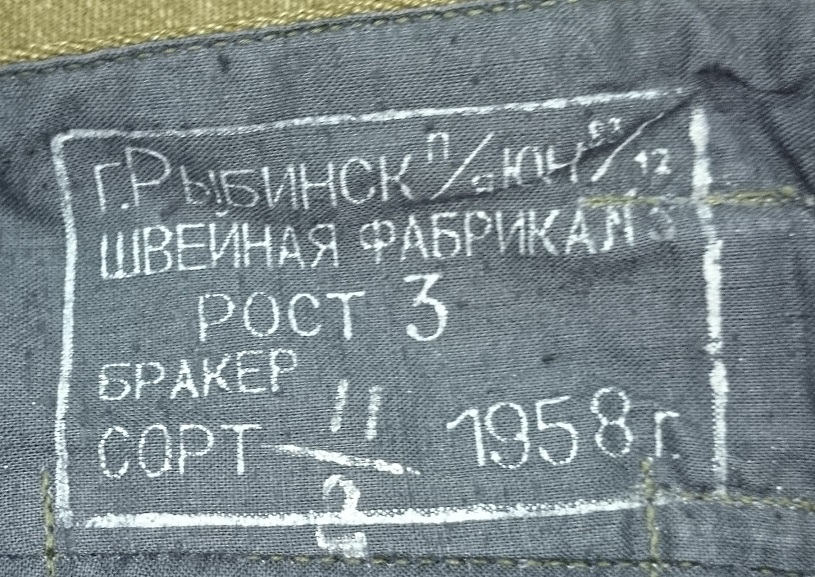 г. Рыбинск п/я ЮН /12
ШВЕЙНАЯ ФАБРИКА N 3
РОСТ 3
БРАКЕР
СОРТ 11/2 1958 г.